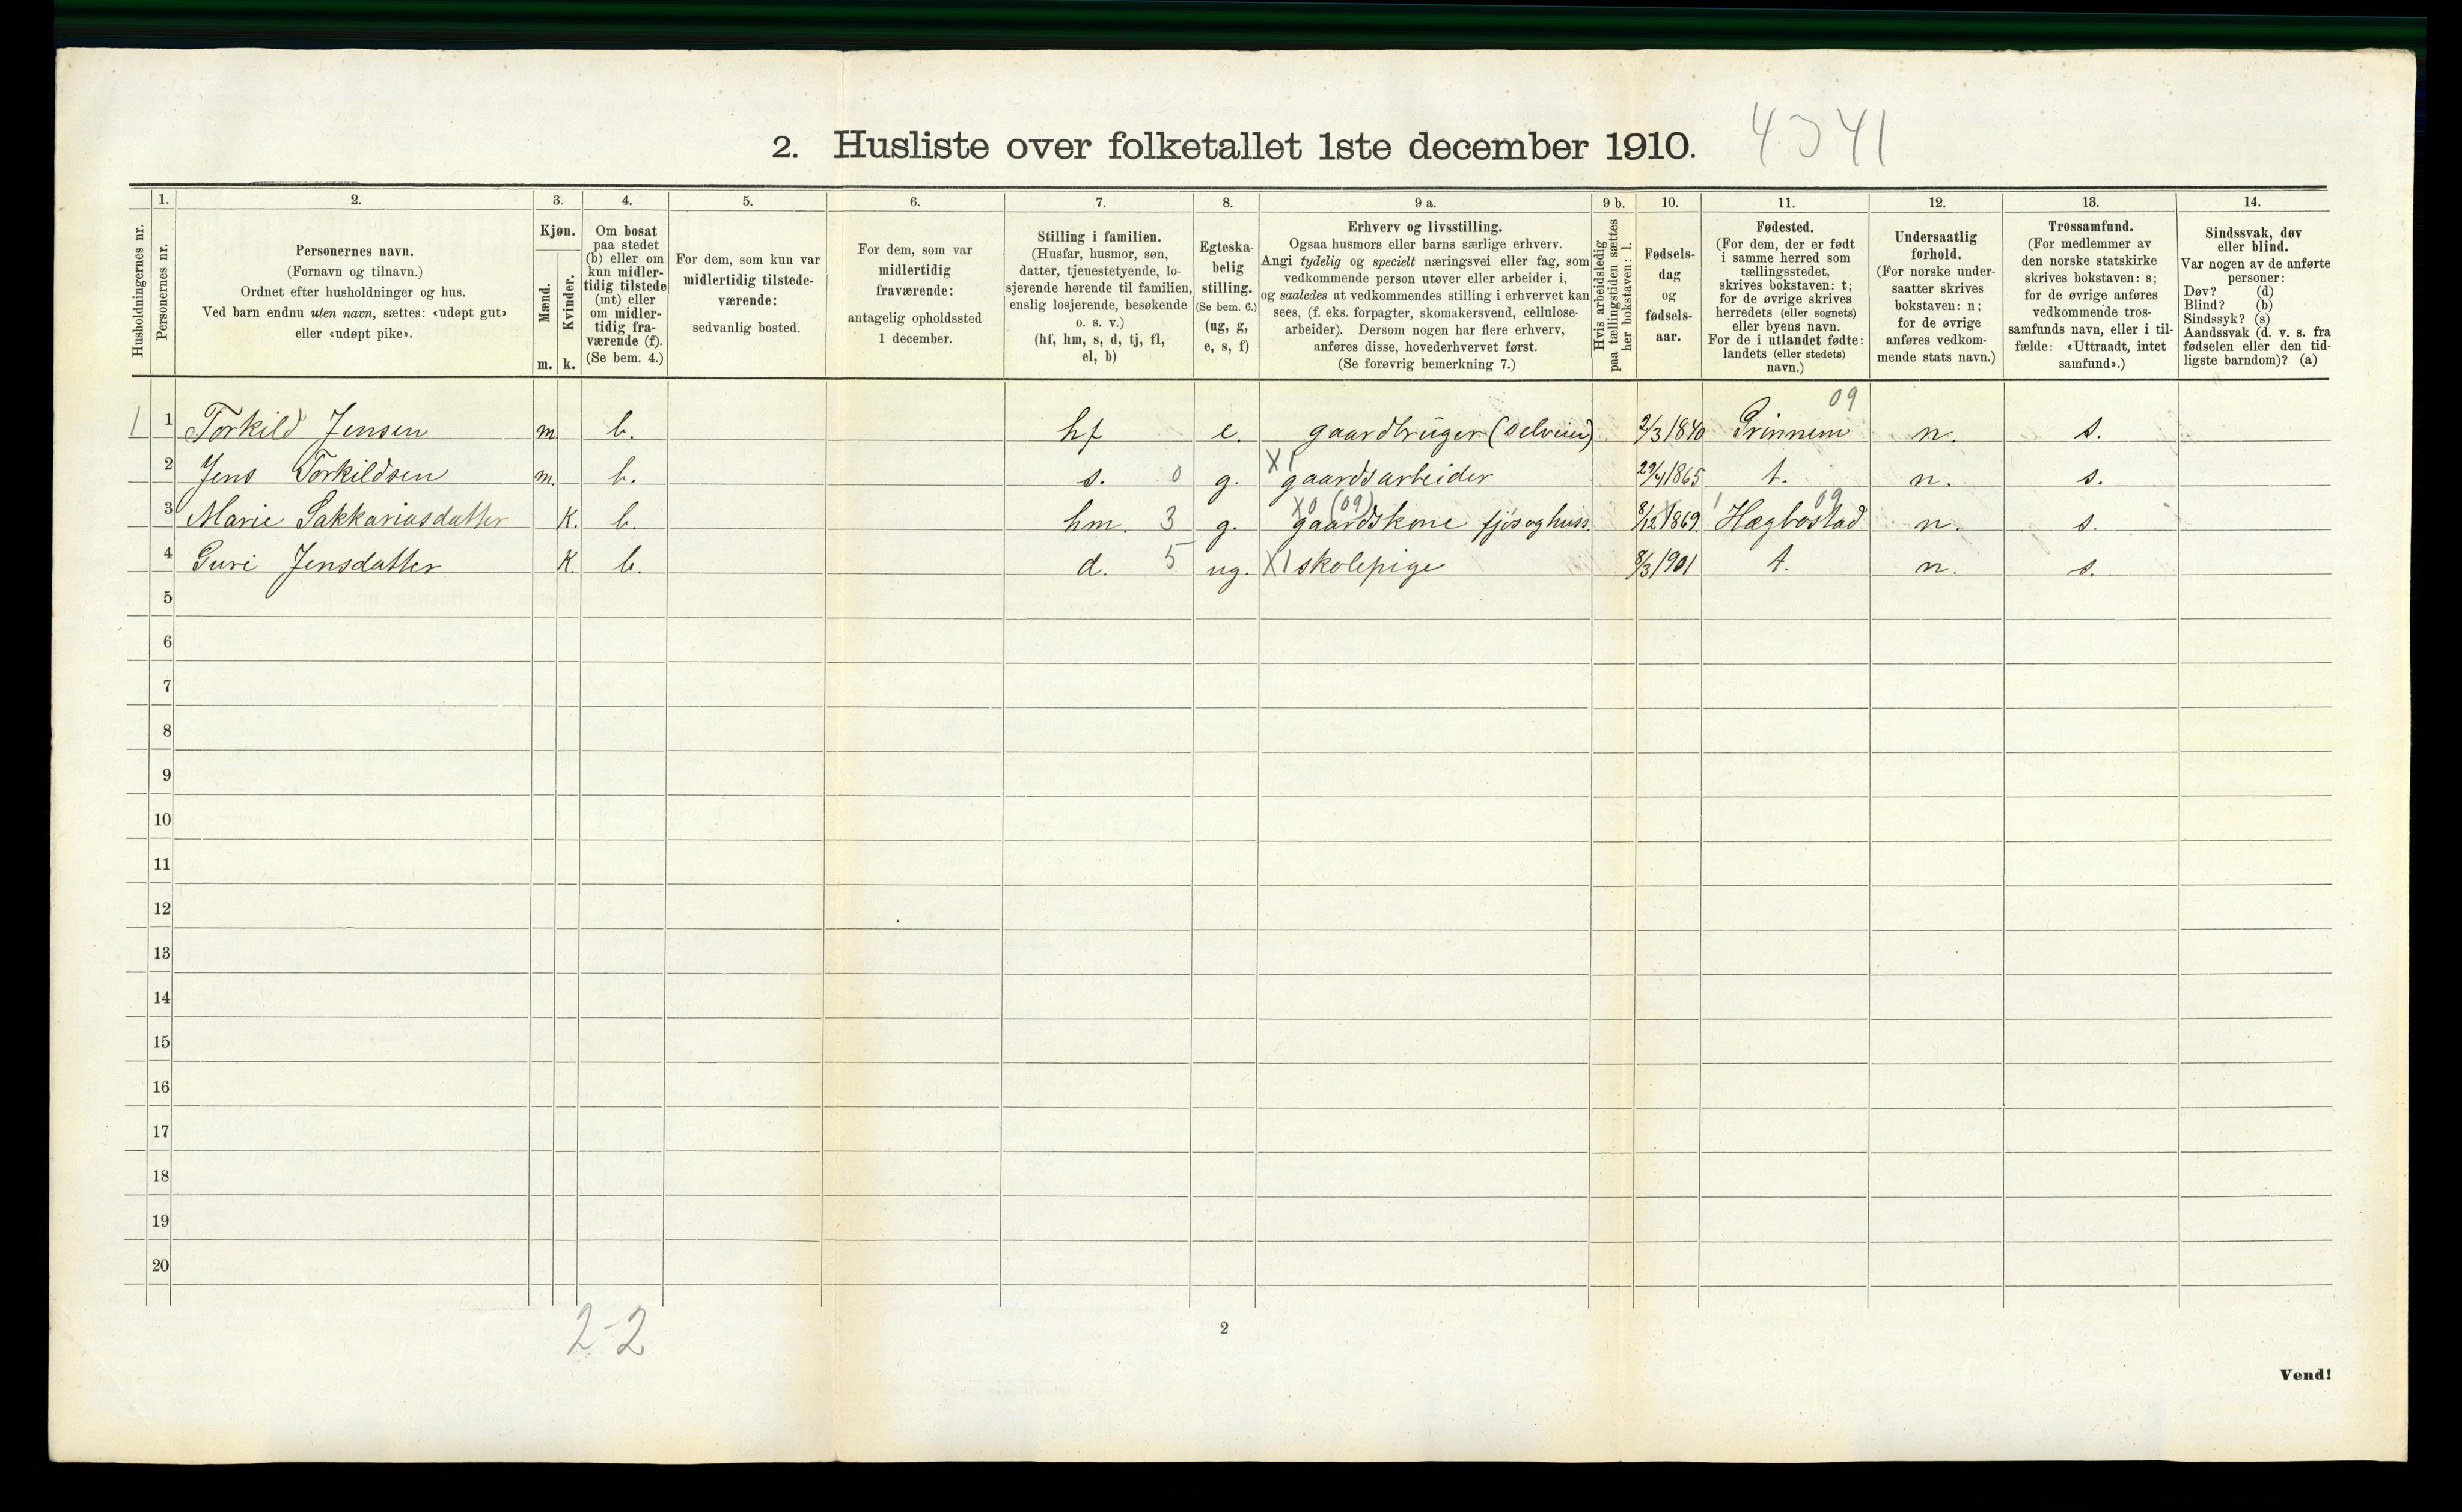 2. Husliste over folketallet 1ste december 1910.
1. 2. 3. 4. 5. 6. 7. 8. 9 a. 9 b. 10. 11. 12. 13. 14.
Husholdningernes nr.
Personernes nr.
Personernes navn.
(Fornavn og tilnavn.)
Ordnet efter husholdninger og hus.
Ved barn endnu uten navn, sættes: «udøpt gut»
eller «udøpt pike».
Kjøn.
Mænd.
Kvinder.
m. k.
Om bosat
paa stedet
(b) eller om
kun midler-
tidig tilstede
(mt) eller
om midler-
tidig fra-
værende (f).
(Se bem. 4.)
For dem, som kun var
midlertidig tilstede-
værende:
sedvanlig bosted.
For dem, som var
midlertidig
fraværende:
antagelig opholdssted
1 december.
Stilling i familien.
(Husfar, husmor, søn,
datter, tjenestetyende, lo-
sjerende hørende til familien,
enslig losjerende, besøkende
o. s. v.)
(hf, hm, s, d, tj, fl,
el, b)
Egteska-
belig
stilling.
(Se bem. 6.)
(ug, g,
e, s, f)
Erhverv og livsstilling.
Ogsaa husmors eller barns særlige erhverv.
Angi tydelig og specielt næringsvei eller fag, som
vedkommende person utøver eller arbeider i,
og saaledes at vedkommendes stilling i erhvervet kan
sees, (f. eks. forpagter, skomakersvend, cellulose-
arbeider). Dersom nogen har flere erhverv,
anføres disse, hovederhvervet først.
(Se forøvrig bemerkning 7.)
Hvis arbeidsledig
paa tællingstiden sættes
her bokstaven: l.
Fødsels-
dag
og
fødsels-
aar.
Fødested.
(For dem, der er født
i samme herred som
tællingsstedet,
skrives bokstaven: t;
for de øvrige skrives
herredets (eller sognets)
eller byens navn.
For de i utlandet fødte:
landets (eller stedets)
navn.)
Undersaatlig
forhold.
(For norske under-
saatter skrives
bokstaven: n;
for de øvrige
anføres vedkom-
mende stats navn.)
Trossamfund.
(For medlemmer av
den norske statskirke
skrives bokstaven: s;
for de øvrige anføres
vedkommende tros-
samfunds navn, eller i til-
fælde: «Uttraadt, intet
samfund».)
Sindssvak, døv
eller blind.
Var nogen av de anførte
personer:
Døv? (d)
Blind? (b)
Sindssyk? (s)
Aandssvak (d. v. s. fra
fødselen eller den tid-
ligste barndom)? (a)
09
1 1 Torkild Jensen m b. hf e. gaardbruger (selveier) 2/3 1840 Grinnem n. s.
2 Jens Torkildsen m. b. s. 0 g. X1 gaardsarbeider 29/4 1865 t. n. s.
X0 (09) 09
3 Marie Sakkariasdatter K. b. hm. 3 g. gaardskone fjøs og huss. 8/12 1869. Hægbostad n. s.
4 Guri Jensdatter K. b. d. 5 ug. X1 skolepige 8/3 1901 t. n. s.
5
6
7
8
9
10
11
12
13
14
15
16
17
18
19
20
2-2
2
Vend!